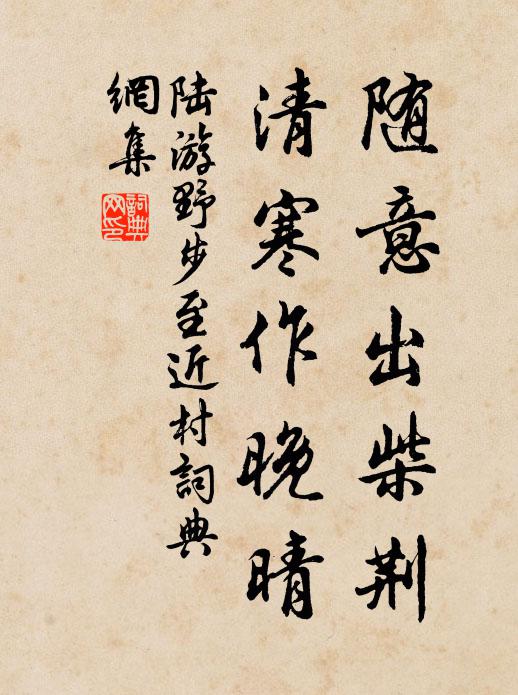 随意出柴荆
清寒作晚晴
陆游野步至近村詞典
網集
詞典
网印